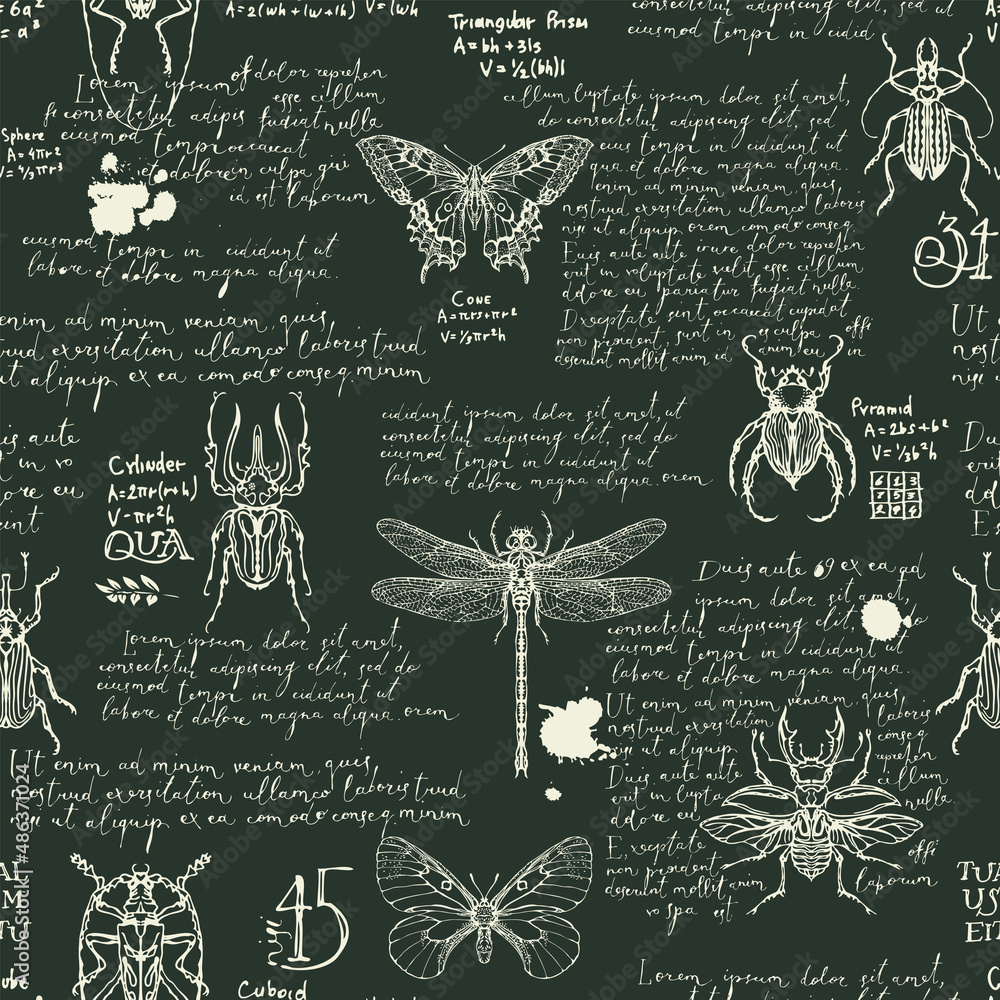 = 6a²
= a³
A = 2(wh + lw + lh)
V = lwh
Triangular Prism
A = bh + 3ls
V = ½(bh)l
consectetur adipiscing elit, sed do
eiusmod tempi in cidid
Lorem ipsum of dolor reprehen
esse cillum
fi consectetur adipis fugiat nulla
eiusmod tempi occaecat
et dolore in culpa qui
id est laborum
Sphere
A = 4πr²
V = 4/3πr³
eiusmod tempi in cididunt ut
labore et dolore magna aliqua.
cillum luptate ipsum dolor sit amet,
do consectetur adipiscing elit, sed
eius tempi in cididunt ut amet
labore et dolore magna aliqua.
enim ad minim veniam, quis,
nostrud exersitation ullamco laboris
nisi ut aliquip ex ea comodo conseq.
Euis aute aute irure dolor reprehen
erit in voluptate velit, esse cillum
dolore eu pariatur fugiat nulla.
Dxceptate sint occaecat cupidat
non proident, sunt in culpa offi
deserunt mollit anim id anim eu in
314
Q
Cone
A = πrs + πr²
V = ⅓πr²h
enim ad minim veniam, quis,
trud exersitation ullamco laboris trud
ut aliquip ex ea comodo conseq. minim
Ut
nost
nisi
cididunt, ipsum dolor sit amet, ut
consectetur adipiscing elit, sed do
eiusmod tempi in cididunt ut
labore et dolore magna aliqua. orem
Pyramid
A = 2bs + b²
V = ⅓b²h
is aute
t in vo
ore eu
unt
Cylinder
A = 2πr(r+h)
V = πr²h
QUA
Duis aute 69 ex ea ad
ipsum dolor sit amet,
consectetur adipiscing elit, do
eiusmod tempi in cididunt ut
labore et dolore magna aliqua.
Ut enim ad minim veniam, quis,
nostrud exersitation laboris
nisi ut aliquip conseq
Duis aute aute reprehen
erit in lupta cillum
dolore eu nulla.
E,xceptate
non proident, offi
deserunt mollit anim laborum
vo spa est
Lorem ipsum dolor sit amet,
consectetur adipiscing elit, sed do
eiusmod tempi in cididunt ut
labore et dolore magna aliqua. orem
Ut enim ad minim veniam, quis,
nostrud exersitation ullamco laboris trud
si ut aliquip ex ea comodo conseq. minim
45
TUA
US
EIT
Cuboid
Lorem ipsum dolor sit amet,
consectetur adipiscing elit, sed do
Adobe Stock | #486371024